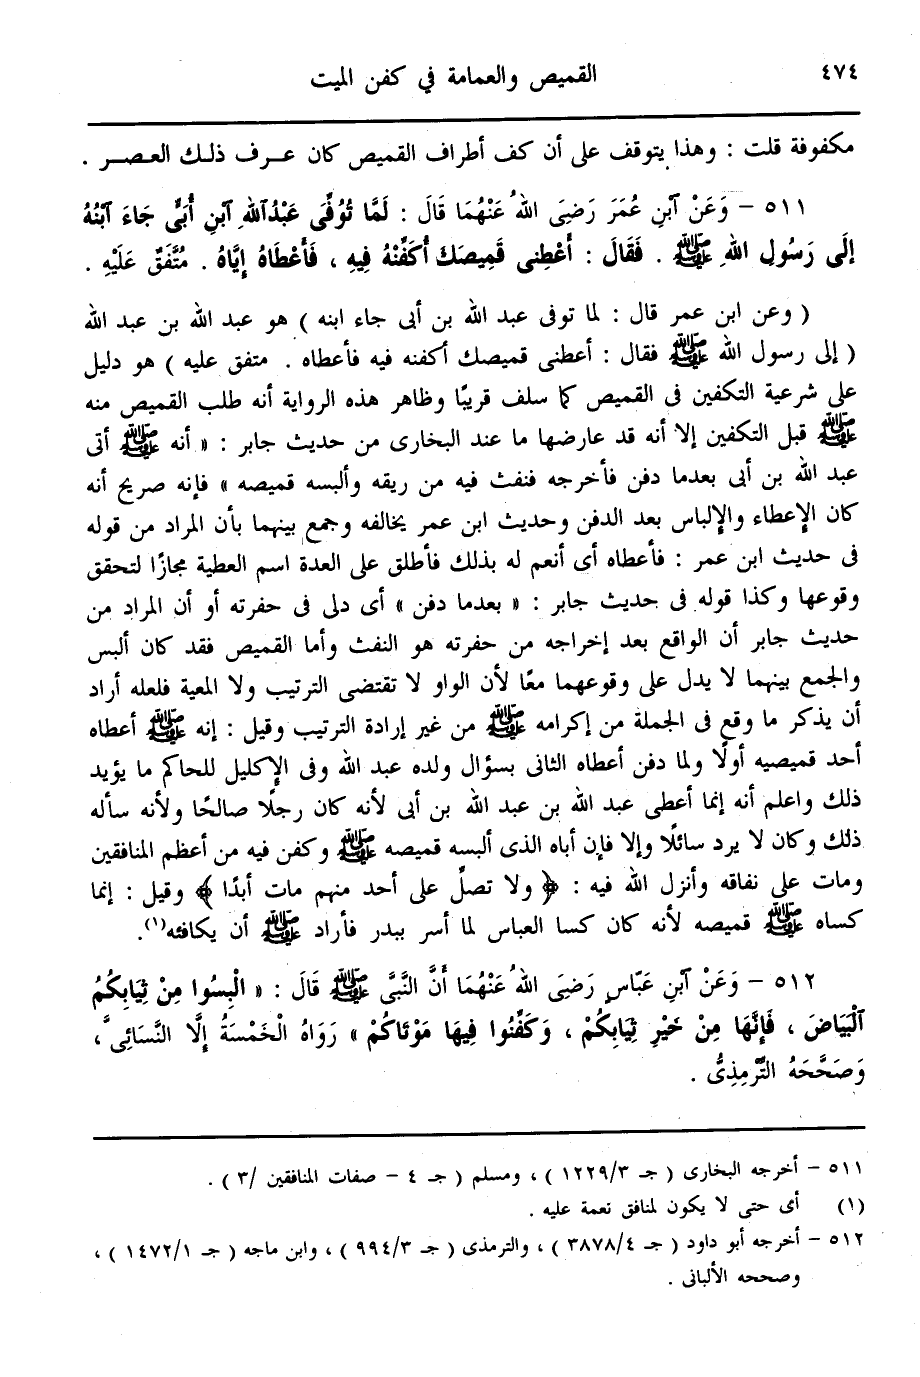 ٤٧٤
القميص والعمامة في كفن الميت
مكفوفة قلت : وهذا يتوقف على أن كف أطراف القميص كان عرف ذلك العصر .
٥١١ – وَعَنْ آبْنِ عُمَرَ رَضِىَ اللهُ عَنْهُمَا قَالَ : لَمَّا تُوُفِّىَ عَبْدُاللهِ آبْنِ أُبَىٍّ جَاءَ آبْنُهُ
إلَى رَسُولِ اللهِ ﷺ . فَقَالَ : أَعْطِنى قَمِيصَكَ أُكَفِّنْهُ فِيهِ ، فَأَعْطَاهُ إيَّاهُ . مُتَّفَقٌ عَلَيْهِ .
( وعن ابن عمر قال : لما توفى عبد الله بن أبى جاء ابنه ) هو عبد الله بن عبد الله
( إلى رسول الله ﷺ فقال : أعطنى قميصك أكفنه فيه فأعطاه . متفق عليه ) هو دليل
على شرعية التكفين فى القميص كما سلف قريبًا وظاهر هذه الرواية أنه طلب القميص منه
ﷺ قبل التكفين إلا أنه قد عارضها ما عند البخارى من حديث جابر : « أنه ﷺ أتى
عبد الله بن أبى بعدما دفن فأخرجه فنفث فيه من ريقه وألبسه قميصه » فإنه صريح أنه
كان الإعطاء والإلباس بعد الدفن وحديث ابن عمر يخالفه وجمع بينهما بأن المراد من قوله
فى حديث ابن عمر : فأعطاه أى أنعم له بذلك فأطلق على العدة اسم العطية مجازًا لتحقق
وقوعها وكذا قوله فى حديث جابر : « بعدما دفن » أى دلى فى حفرته أو أن المراد من
حديث جابر أن الواقع بعد إخراجه من حفرته هو النفث وأما القميص فقد كان ألبس
والجمع بينهما لا يدل على وقوعهما معًا لأن الواو لا تقتضى الترتيب ولا المعية فلعله أراد
أن يذكر ما وقع فى الجملة من إكرامه ﷺ من غير إرادة الترتيب وقيل : إنه ﷺ أعطاه
أحد قميصيه أولًا ولما دفن أعطاه الثانى بسؤال ولده عبد الله وفى الإكليل للحاكم ما يؤيد
ذلك واعلم أنه إنما أعطى عبد الله بن عبد الله بن أبى لأنه كان رجلًا صالحًا ولأنه سأله
ذلك وكان لا يرد سائلًا وإلا فإن أباه الذى ألبسه قميصه ﷺ وكفن فيه من أعظم المنافقين
ومات على نفاقه وأنزل الله فيه : ﴿ ولا تصلِّ على أحد منهم مات أبدًا ﴾ وقيل : إنما
كساه ﷺ قميصه لأنه كان كسا العباس لما أسر ببدر فأراد ﷺ أن يكافئه(١).
٥١٢ – وَعَنْ آبْنِ عَبَّاسٍ رَضِىَ اللهُ عَنْهُمَا أَنَّ النَّبِىَّ ﷺ قَالَ : « الْبِسُوا مِنْ ثِيَابِكُمُ
الْبَيَاضَ ، فَإِنَّهَا مِنْ خَيْرِ ثِيَابِكُمْ ، وَكَفِّنُوا فِيهَا مَوْتَاكُمْ » رَوَاهُ الْخَمْسَةُ إلَّا النَّسَائِىَّ ،
وَصَحَّحَهُ التِّرْمِذِىُّ .
٥١١ – أخرجه البخارى ( جـ ١٢٢٩/٣ ) ، ومسلم ( جـ ٤ – صفات المنافقين /٣ ) .
(١) أى حتى لا يكون لمنافق نعمة عليه .
٥١٢ – أخرجه أبو داود ( جـ ٣٨٧٨/٤ ) ، والترمذى ( جـ ٩٩٤/٣ ) ، وابن ماجه ( جـ ١٤٧٢/١ ) ،
وصححه الألبانى .